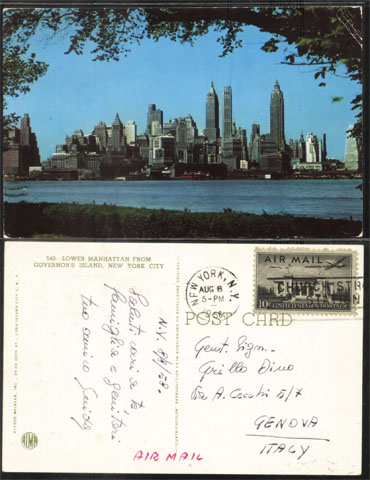 540 - LOWER MANHATTAN FROM
GOVERNOR'S ISLAND, NEW YORK CITY
NEW YORK, N.Y.
AUG 8
5-PM
AIR MAIL
10¢ UNITED STATES POSTAGE
CHURCH ST
POST CARD
N.Y. 8/8/58.
Saluti cari a te
famiglia e genitori
tuo amico Guido
Gent. Sign.
Grillo Dino
Via A. Cecchi 5/7
GENOVA
ITALY
AIR MAIL